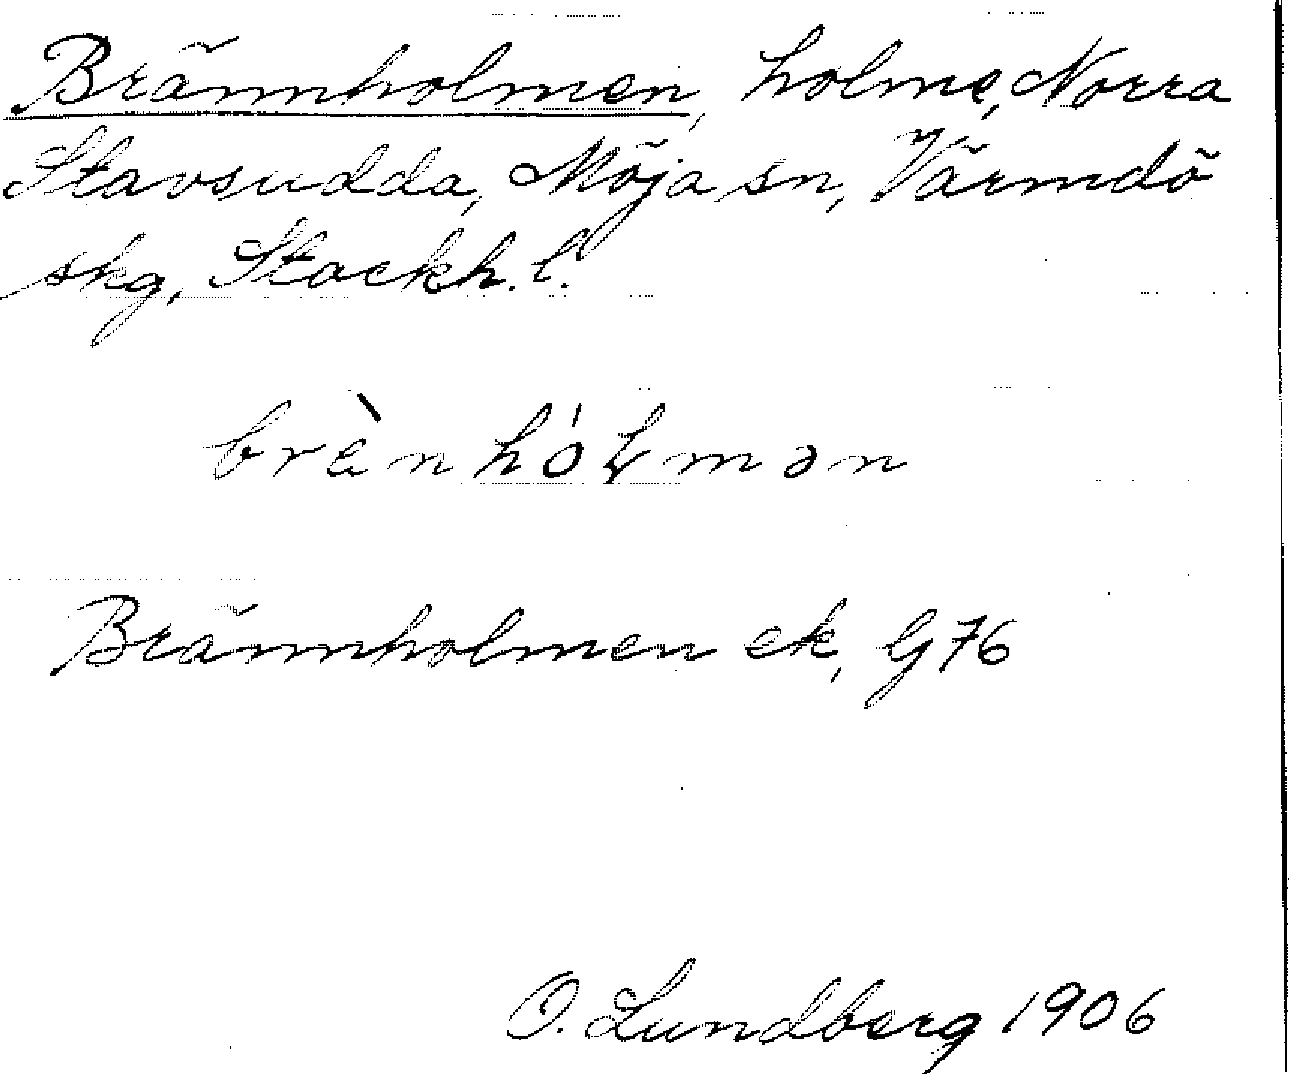 Brännholmen, holme, Norra
Stavsudda, Möja sn, Värmdö
skg, Stockh. l.
brènhóɫmən
Brännholmen ek, G76
O. Lundberg 1906